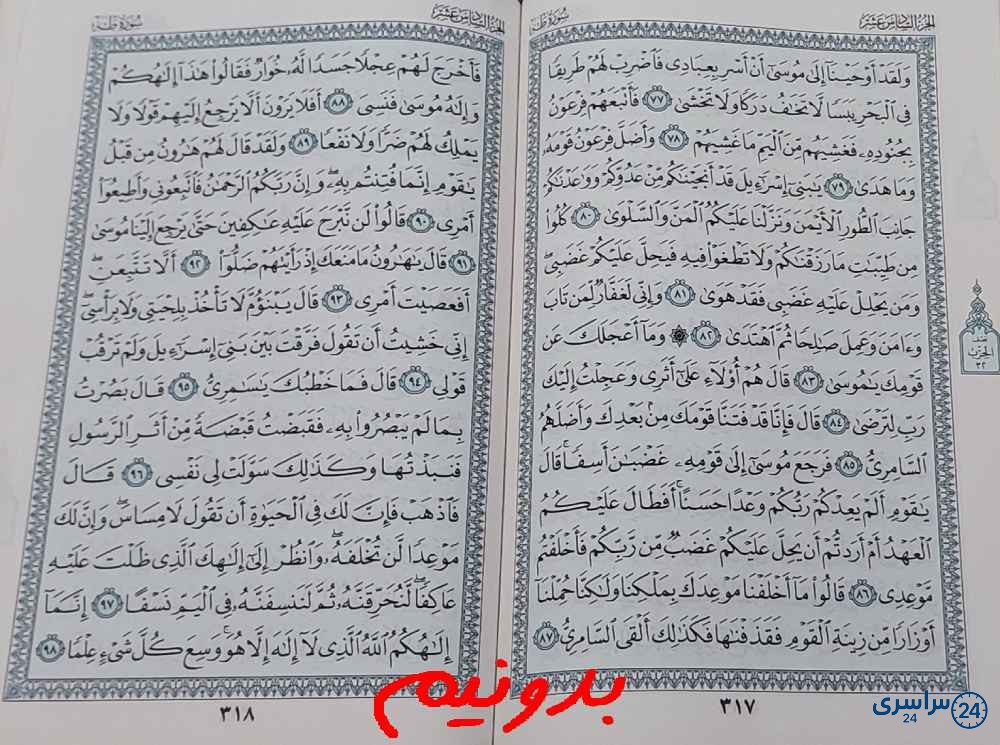 الجزء السادس عشر
سورة طه
وَلَقَدْ أَوْحَيْنَآ إِلَىٰ مُوسَىٰٓ أَنْ أَسْرِ بِعِبَادِى فَٱضْرِبْ لَهُمْ طَرِيقًا
فِى ٱلْبَحْرِ يَبَسًا لَّا تَخَٰفُ دَرَكًا وَلَا تَخْشَىٰ ٧٧ فَأَتْبَعَهُمْ فِرْعَوْنُ
بِجُنُودِهِۦ فَغَشِيَهُم مِّنَ ٱلْيَمِّ مَا غَشِيَهُمْ ٧٨ وَأَضَلَّ فِرْعَوْنُ قَوْمَهُۥ
وَمَا هَدَىٰ ٧٩ يَٰبَنِىٓ إِسْرَٰٓءِيلَ قَدْ أَنجَيْنَٰكُم مِّنْ عَدُوِّكُمْ وَوَٰعَدْنَٰكُمْ
جَانِبَ ٱلطُّورِ ٱلْأَيْمَنَ وَنَزَّلْنَا عَلَيْكُمُ ٱلْمَنَّ وَٱلسَّلْوَىٰ ٨٠ كُلُوا۟
مِن طَيِّبَٰتِ مَا رَزَقْنَٰكُمْ وَلَا تَطْغَوْا۟ فِيهِ فَيَحِلَّ عَلَيْكُمْ غَضَبِى ۖ
وَمَن يَحْلِلْ عَلَيْهِ غَضَبِى فَقَدْ هَوَىٰ ٨١ وَإِنِّى لَغَفَّارٌ لِّمَن تَابَ
وَءَامَنَ وَعَمِلَ صَٰلِحًا ثُمَّ ٱهْتَدَىٰ ٨٢ ۞ وَمَآ أَعْجَلَكَ عَن
قَوْمِكَ يَٰمُوسَىٰ ٨٣ قَالَ هُمْ أُو۟لَآءِ عَلَىٰٓ أَثَرِى وَعَجِلْتُ إِلَيْكَ
رَبِّ لِتَرْضَىٰ ٨٤ قَالَ فَإِنَّا قَدْ فَتَنَّا قَوْمَكَ مِنۢ بَعْدِكَ وَأَضَلَّهُمُ
ٱلسَّامِرِىُّ ٨٥ فَرَجَعَ مُوسَىٰٓ إِلَىٰ قَوْمِهِۦ غَضْبَٰنَ أَسِفًا ۚ قَالَ
يَٰقَوْمِ أَلَمْ يَعِدْكُمْ رَبُّكُمْ وَعْدًا حَسَنًا ۚ أَفَطَالَ عَلَيْكُمُ
ٱلْعَهْدُ أَمْ أَرَدتُّمْ أَن يَحِلَّ عَلَيْكُمْ غَضَبٌ مِّن رَّبِّكُمْ فَأَخْلَفْتُم
مَّوْعِدِى ٨٦ قَالُوا۟ مَآ أَخْلَفْنَا مَوْعِدَكَ بِمَلْكِنَا وَلَٰكِنَّا حُمِّلْنَآ
أَوْزَارًا مِّن زِينَةِ ٱلْقَوْمِ فَقَذَفْنَٰهَا فَكَذَٰلِكَ أَلْقَى ٱلسَّامِرِىُّ ٨٧
٣١٧
الحزب
٣٢
الجزء السادس عشر
سورة طه
فَأَخْرَجَ لَهُمْ عِجْلًا جَسَدًا لَّهُۥ خُوَارٌ فَقَالُوا۟ هَٰذَآ إِلَٰهُكُمْ
وَإِلَٰهُ مُوسَىٰ فَنَسِىَ ٨٨ أَفَلَا يَرَوْنَ أَلَّا يَرْجِعُ إِلَيْهِمْ قَوْلًا وَلَا
يَمْلِكُ لَهُمْ ضَرًّا وَلَا نَفْعًا ٨٩ وَلَقَدْ قَالَ لَهُمْ هَٰرُونُ مِن قَبْلُ
يَٰقَوْمِ إِنَّمَا فُتِنتُم بِهِۦ ۖ وَإِنَّ رَبَّكُمُ ٱلرَّحْمَٰنُ فَٱتَّبِعُونِى وَأَطِيعُوٓا۟
أَمْرِى ٩٠ قَالُوا۟ لَن نَّبْرَحَ عَلَيْهِ عَٰكِفِينَ حَتَّىٰ يَرْجِعَ إِلَيْنَا مُوسَىٰ
٩١ قَالَ يَٰهَٰرُونُ مَا مَنَعَكَ إِذْ رَأَيْتَهُمْ ضَلُّوٓا۟ ٩٢ أَلَّا تَتَّبِعَنِ ۖ
أَفَعَصَيْتَ أَمْرِى ٩٣ قَالَ يَبْنَؤُمَّ لَا تَأْخُذْ بِلِحْيَتِى وَلَا بِرَأْسِىٓ ۖ
إِنِّى خَشِيتُ أَن تَقُولَ فَرَّقْتَ بَيْنَ بَنِىٓ إِسْرَٰٓءِيلَ وَلَمْ تَرْقُبْ
قَوْلِى ٩٤ قَالَ فَمَا خَطْبُكَ يَٰسَٰمِرِىُّ ٩٥ قَالَ بَصُرْتُ
بِمَا لَمْ يَبْصُرُوا۟ بِهِۦ فَقَبَضْتُ قَبْضَةً مِّنْ أَثَرِ ٱلرَّسُولِ
فَنَبَذْتُهَا وَكَذَٰلِكَ سَوَّلَتْ لِى نَفْسِى ٩٦ قَالَ
فَٱذْهَبْ فَإِنَّ لَكَ فِى ٱلْحَيَوٰةِ أَن تَقُولَ لَا مِسَاسَ ۖ وَإِنَّ لَكَ
مَوْعِدًا لَّن تُخْلَفَهُۥ ۖ وَٱنظُرْ إِلَىٰٓ إِلَٰهِكَ ٱلَّذِى ظَلْتَ عَلَيْهِ
عَاكِفًا ۖ لَّنُحَرِّقَنَّهُۥ ثُمَّ لَنَنسِفَنَّهُۥ فِى ٱلْيَمِّ نَسْفًا ٩٧ إِنَّمَآ
إِلَٰهُكُمُ ٱللَّهُ ٱلَّذِى لَآ إِلَٰهَ إِلَّا هُوَ ۚ وَسِعَ كُلَّ شَىْءٍ عِلْمًا ٩٨
٣١٨
بدونیم
سراسری 24
24